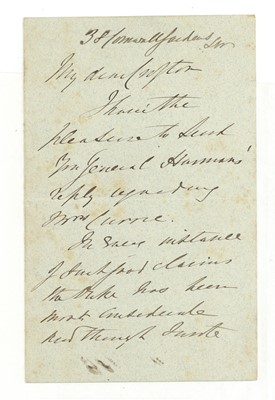 38 Cornwall Gardens SW
My dear Crofton
I have the
pleasure to send
you General Harman's
reply regarding
Currie.
In every instance
of such good claims
the Duke has been
most considerate
and though I wrote